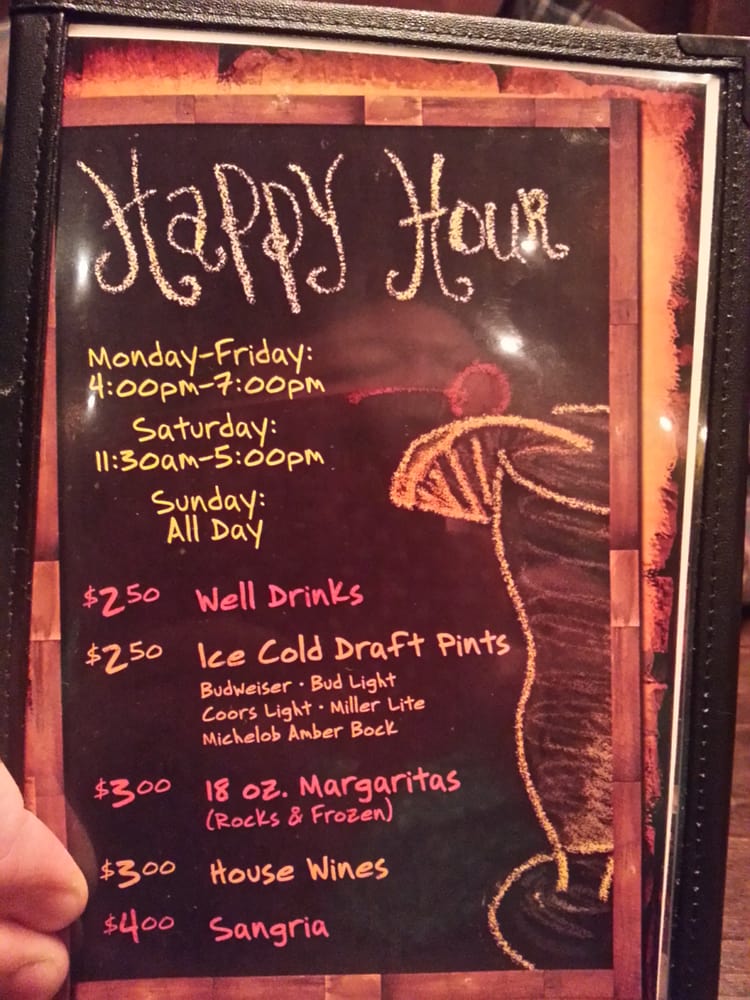 Happy Hour
Monday-Friday:
4:00pm-7:00pm
Saturday:
11:30am-5:00pm
Sunday:
All Day
$2.50 Well Drinks
$2.50 Ice Cold Draft Pints
Budweiser · Bud Light
Coors Light · Miller Lite
Michelob Amber Bock
$3.00 18 oz. Margaritas
(Rocks & Frozen)
$3.00 House Wines
$4.00 Sangria